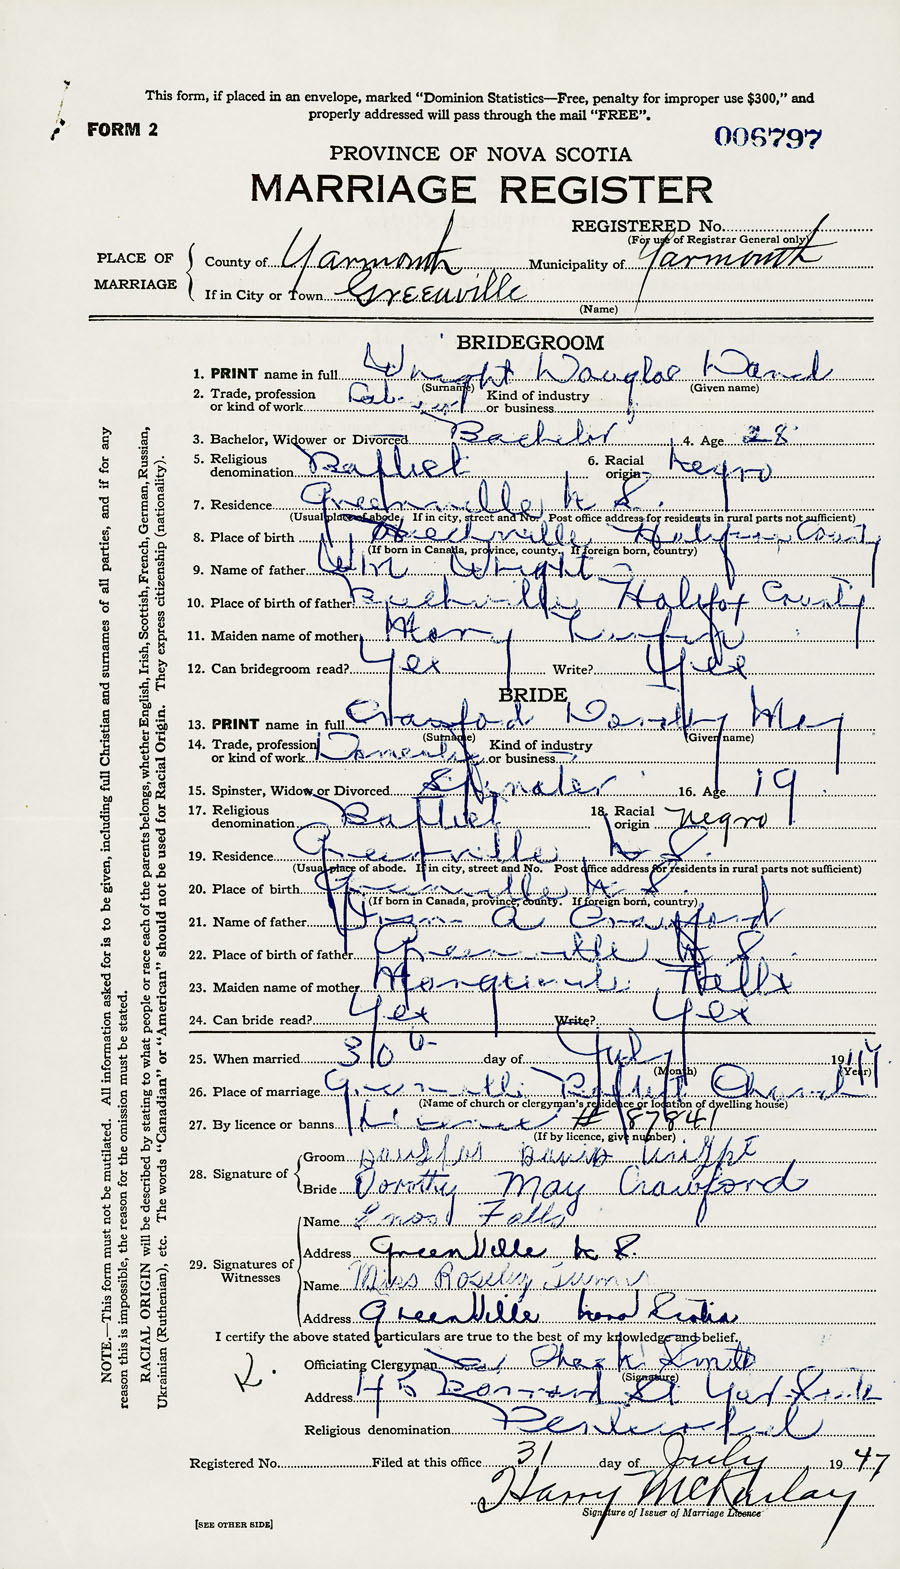 This form, if placed in an envelope, marked “Dominion Statistics—Free, penalty for improper use $300,” and
properly addressed will pass through the mail “FREE”.
FORM 2
006797
PROVINCE OF NOVA SCOTIA
MARRIAGE REGISTER
REGISTERED No.
(For use of Registrar General only)
PLACE OF MARRIAGE
County of Yarmouth Municipality of Yarmouth
If in City or Town Greenville
(Name)
BRIDEGROOM
1. PRINT name in full Wright Douglas David
(Surname) (Given name)
2. Trade, profession or kind of work Kind of industry or business
3. Bachelor, Widower or Divorced Bachelor 4. Age 28
5. Religious denomination Baptist 6. Racial origin Negro
7. Residence Greenville N S.
(Usual place of abode. If in city, street and No. Post office address for residents in rural parts not sufficient)
8. Place of birth Beechville Halifax County
(If born in Canada, province, county. If foreign born, country)
9. Name of father Wm Wright
10. Place of birth of father Beechville Halifax County
11. Maiden name of mother Mary
12. Can bridegroom read? Yes Write? Yes
BRIDE
13. PRINT name in full Crawford Dorothy May
(Surname) (Given name)
14. Trade, profession or kind of work Domestic Kind of industry or business
15. Spinster, Widow or Divorced Spinster 16. Age 19
17. Religious denomination Baptist 18. Racial origin Negro
19. Residence Greenville N S.
(Usual place of abode. If in city, street and No. Post office address for residents in rural parts not sufficient)
20. Place of birth Greenville N S.
(If born in Canada, province, county. If foreign born, country)
21. Name of father A Crawford
22. Place of birth of father Greenville N S.
23. Maiden name of mother Falls
24. Can bride read? Yes Write? Yes
25. When married 30th day of July 1947
(Month) (Year)
26. Place of marriage Greenville Baptist Church
(Name of church or clergyman's residence or location of dwelling house)
27. By licence or banns Licence # 87841
(If by licence, give number)
28. Signature of
Groom Douglas David Wright
Bride Dorothy May Crawford
29. Signatures of Witnesses
Name Enos Falls
Address GreenVille N S.
Name Miss
Address GreenVille Nova Scotia
I certify the above stated particulars are true to the best of my knowledge and belief.
Officiating Clergyman Smith
(Signature)
Address 45 St
Religious denomination Pentecostal
Registered No. Filed at this office 31 day of July 1947
Harry McKinlay
Signature of Issuer of Marriage Licence
[SEE OTHER SIDE]
NOTE.—This form must not be mutilated. All information asked for is to be given, including full Christian and surnames of all parties, and if for any
reason this is impossible, the reason for the omission must be stated.
RACIAL ORIGIN will be described by stating to what people or race each of the parents belongs, whether English, Irish, Scottish, French, German, Russian,
Ukrainian (Ruthenian), etc. The words “Canadian” or “American” should not be used for Racial Origin. They express citizenship (nationality).